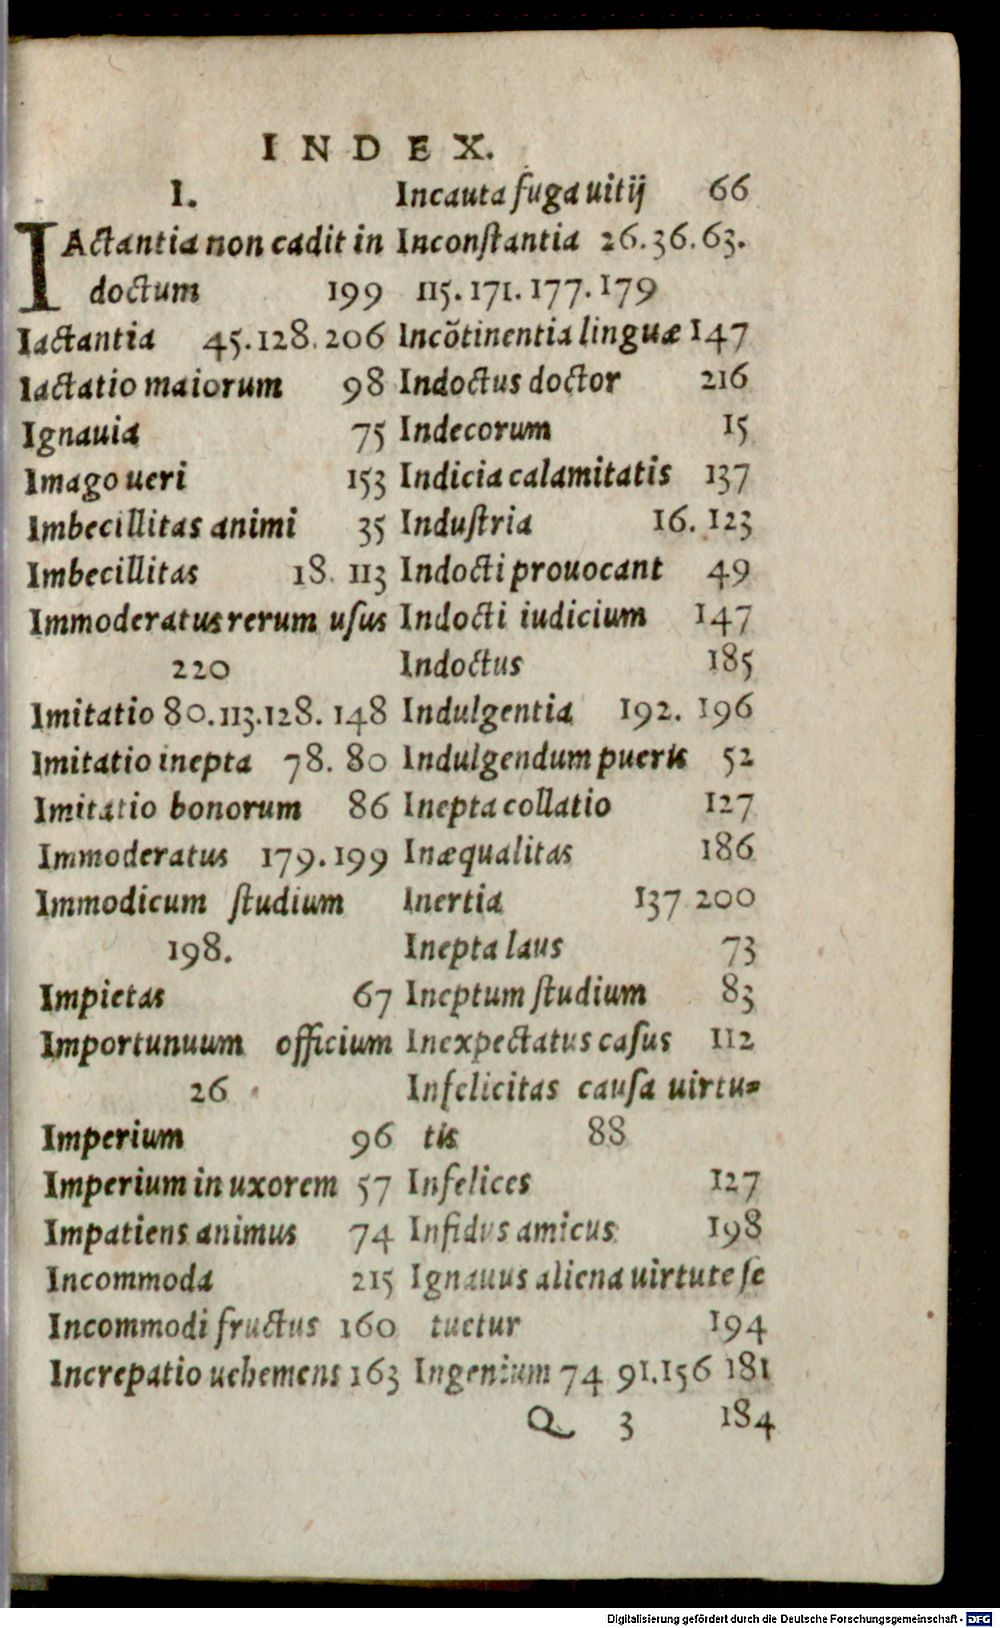 INDEX.
I.
IActantia non cadit in
doctum 199
Iactantia 45.128.206
Iactatio maiorum 98
Ignauia 75
Imago ueri 153
Imbecillitas animi 35
Imbecillitas 18. 113
Immoderatus rerum uſus
220
Imitatio 80.113.128.148
Imitatio inepta 78. 80
Imitatio bonorum 86
Immoderatus 179.199
Immodicum ſtudium
198.
Impietas 67
Importunuum officium
26
Imperium 96
Imperium in uxorem 57
Impatiens animus 74
Incommoda 215
Incommodi fructus 160
Increpatio uehemens 163
Incauta fuga uitij 66
Inconſtantia 26.36.63.
115.171.177.179
Incõtinentia linguæ 147
Indoctus doctor 216
Indecorum 15
Indicia calamitatis 137
Induſtria 16. 123
Indocti prouocant 49
Indocti iudicium 147
Indoctus 185
Indulgentia 192. 196
Indulgendum pueris 52
Inepta collatio 127
Inæqualitas 186
Inertia 137 200
Inepta laus 73
Ineptum ſtudium 83
Inexpectatus caſus 112
Infelicitas cauſa uirtu-
tis 88
Infelices 127
Infidus amicus 198
Ignauus aliena uirtute ſe
tuetur 194
Ingenium 74 91.156 181
Q 3 184
Digitalisierung gefördert durch die Deutsche Forschungsgemeinschaft - DFG